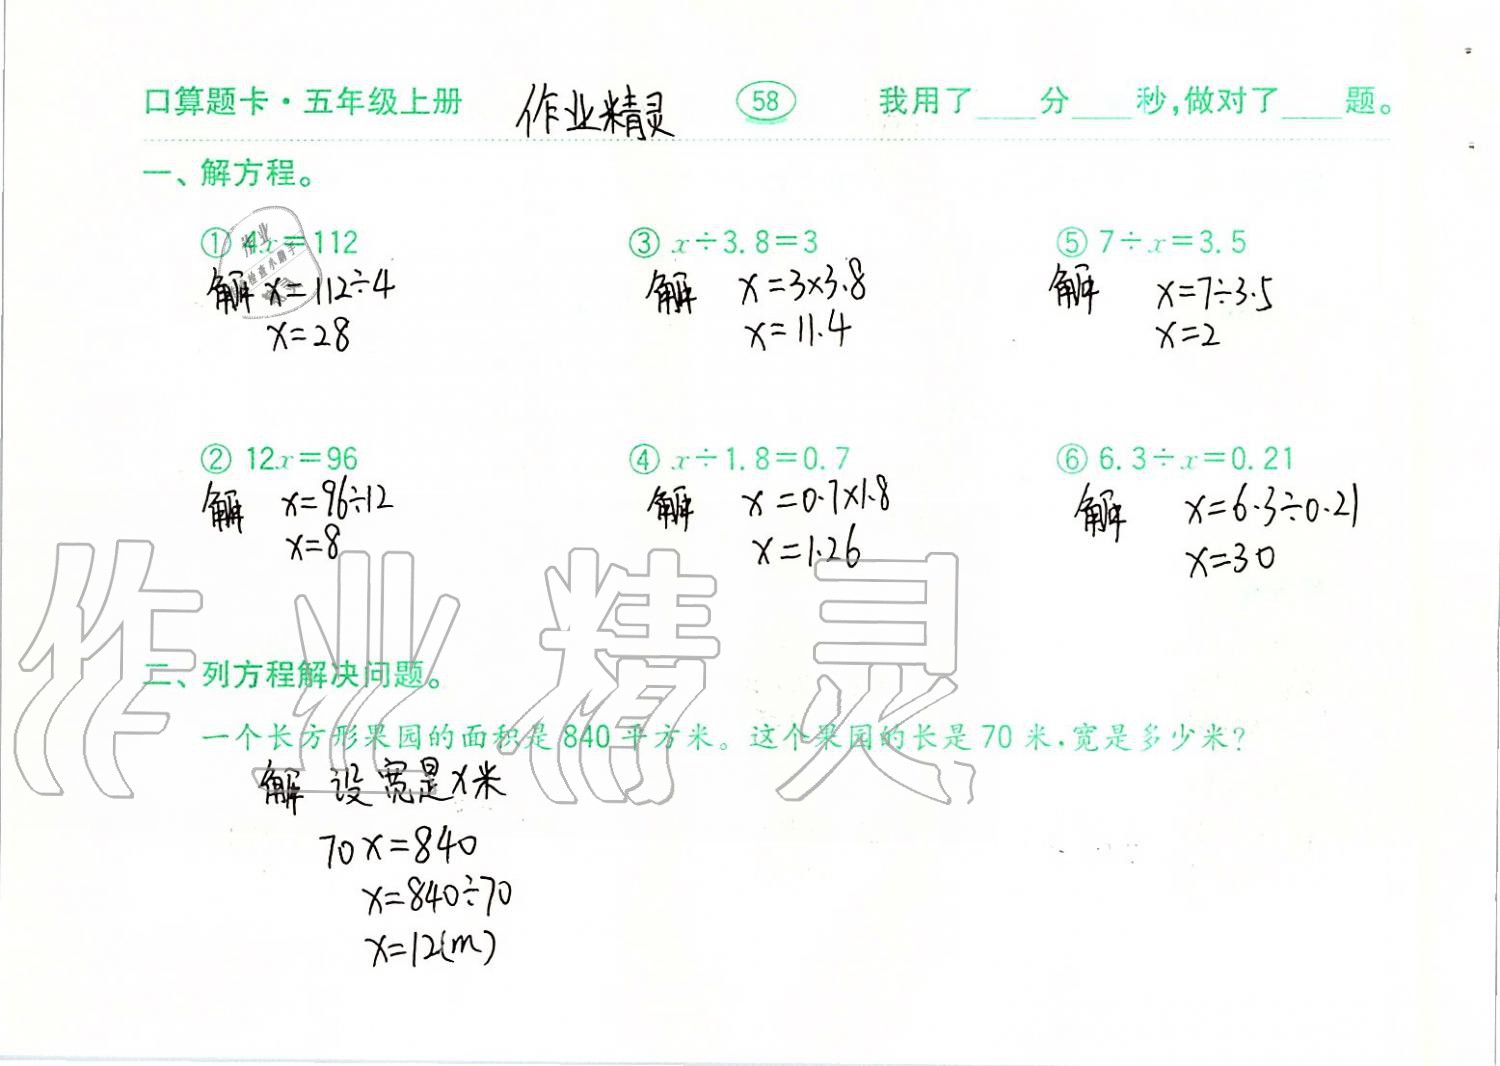 口算题卡·五年级上册 作业精灵 58 我用了____分____秒,做对了____题。
一、解方程。
① 4x=112 ③ x÷3.8=3 ⑤ 7÷x=3.5
解 x=112÷4 解 x=3×3.8 解 x=7÷3.5
x=28 x=11.4 x=2
② 12x=96 ④ x÷1.8=0.7 ⑥ 6.3÷x=0.21
解 x=96÷12 解 x=0.7×1.8 解 x=6.3÷0.21
x=8 x=1.26 x=30
作业精灵
二、列方程解决问题。
一个长方形果园的面积是840平方米。这个果园的长是70米,宽是多少米?
解 设宽是x米
70x=840
x=840÷70
x=12(m)
作业
检查小助手